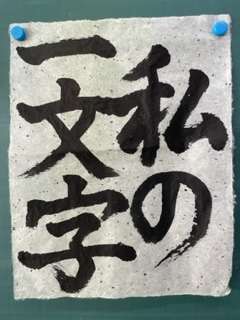 私の
一文字